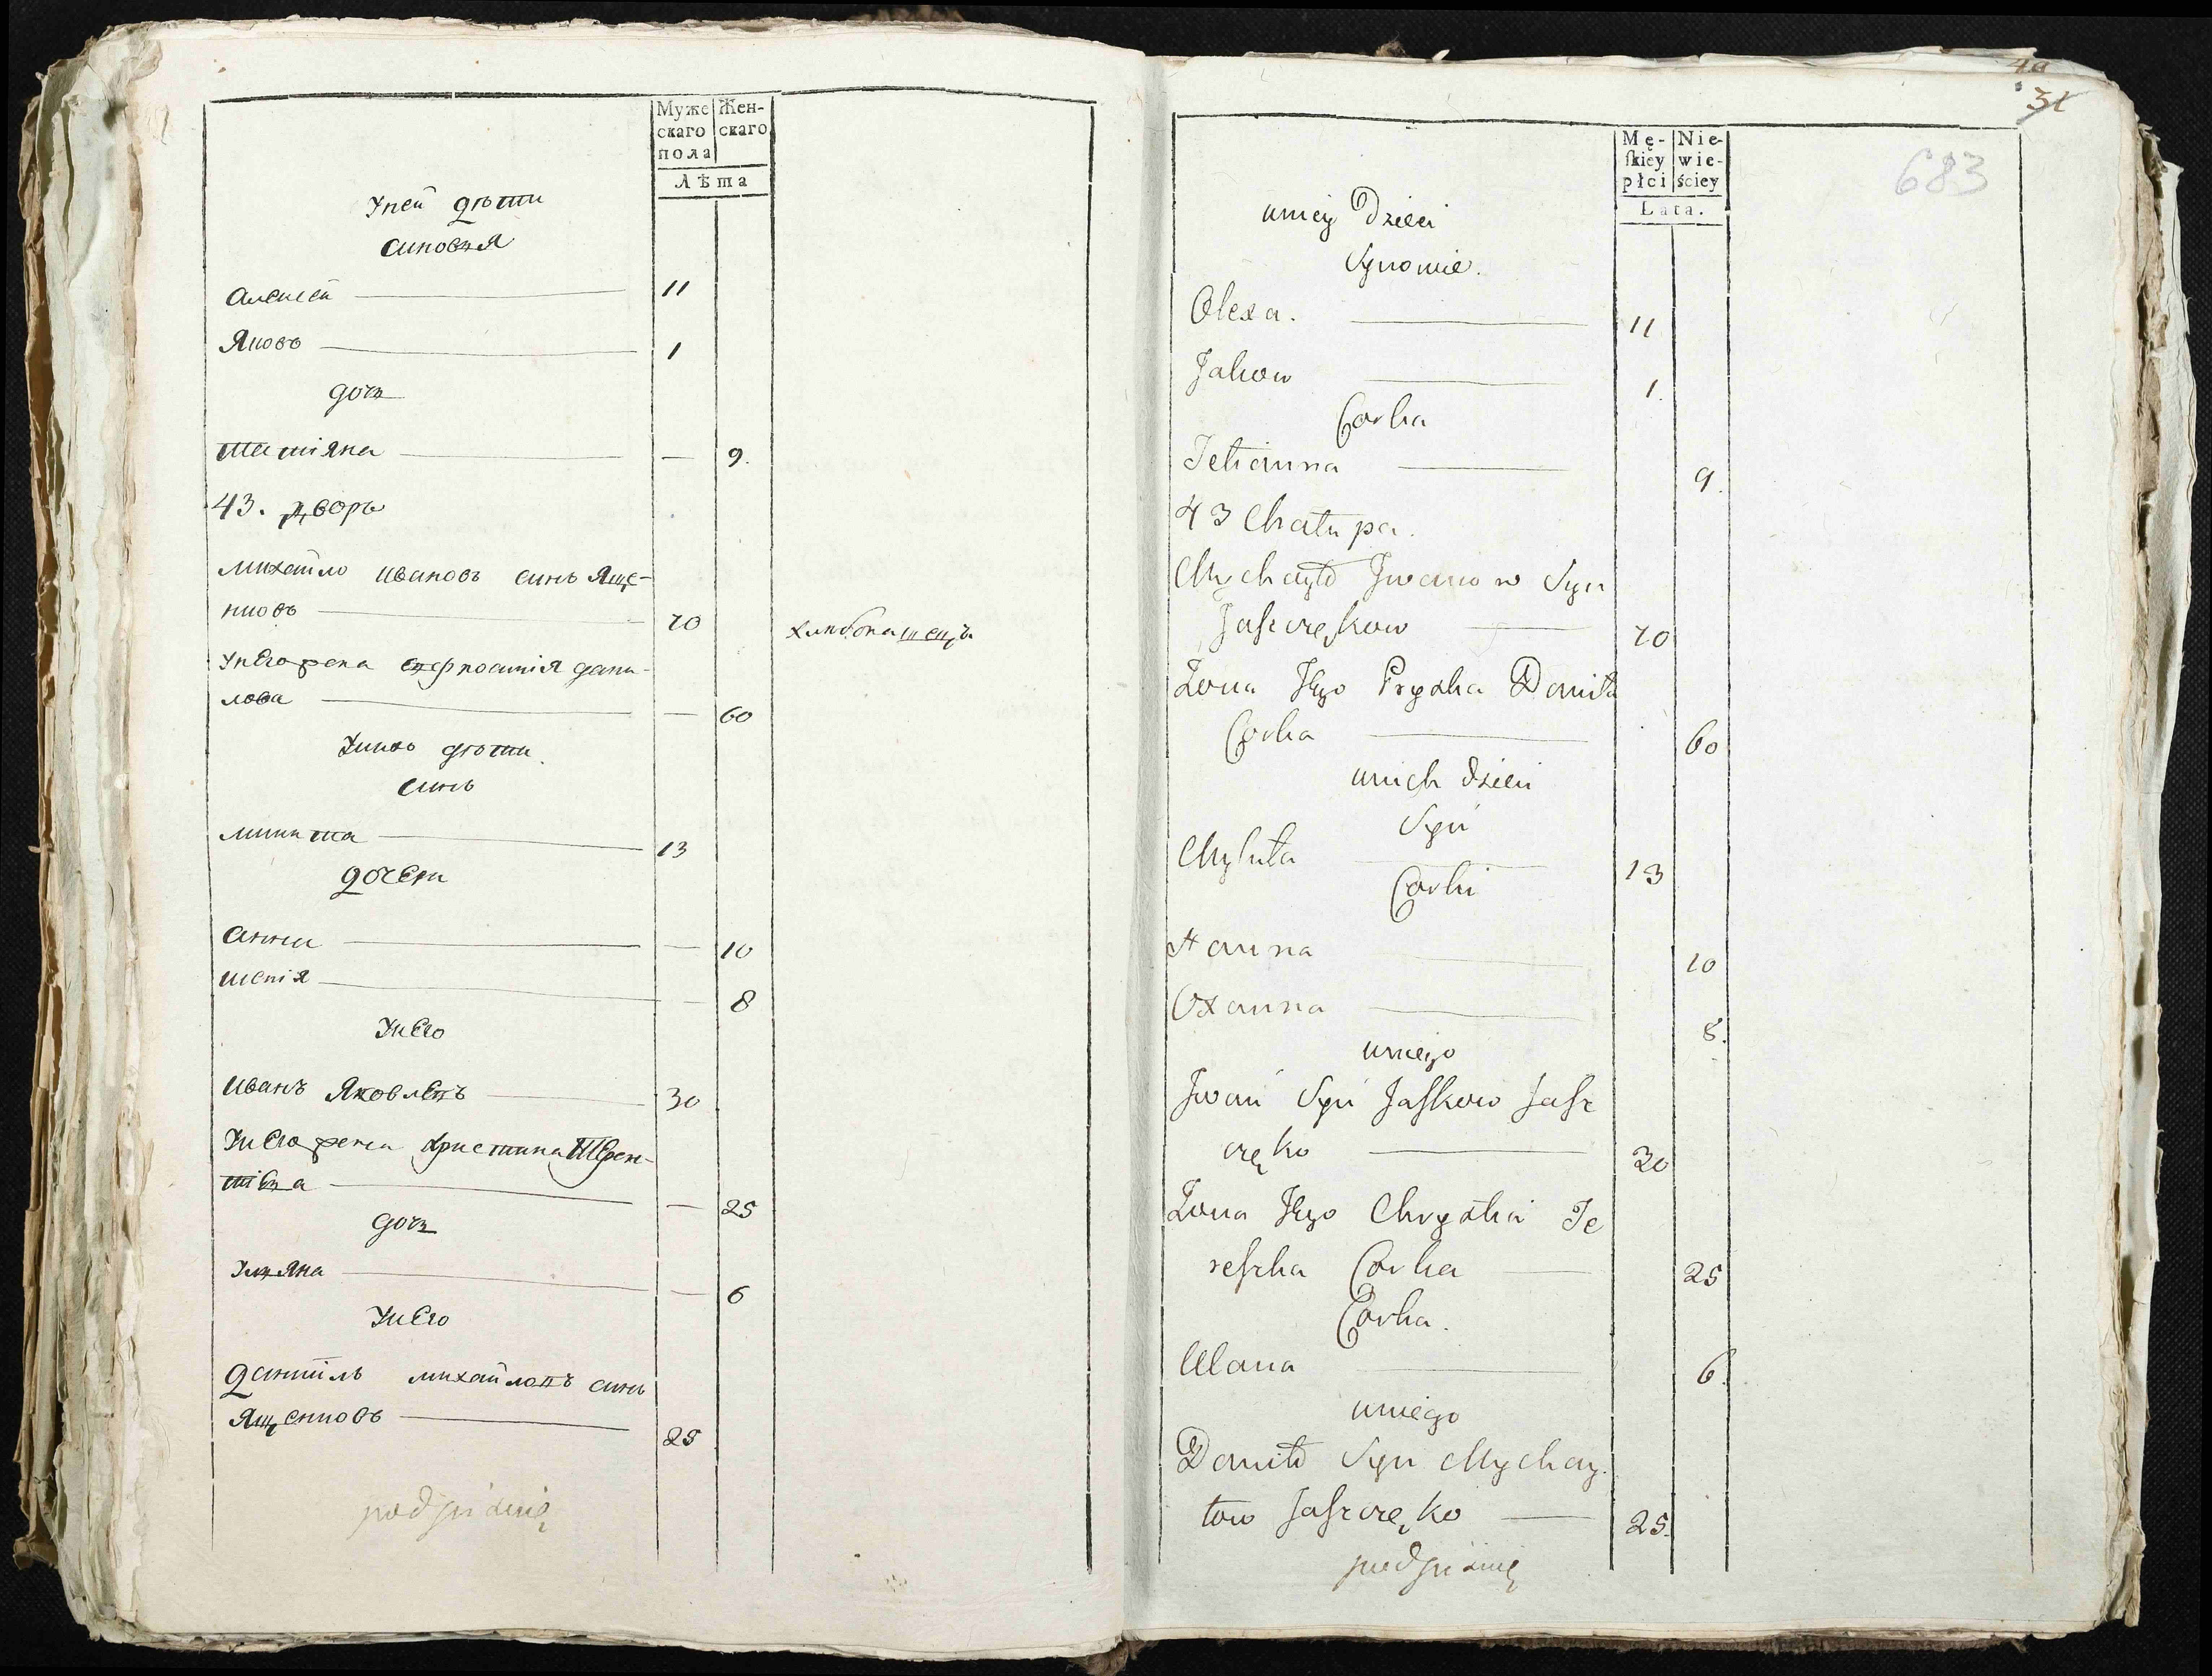 Муже
скаго
пола
Жен-
скаго
Лѣта
Уней дѣти
синовья
алексѣй 11
Яковъ 1
дочь
татіяна — 9.
43. дворъ
михайло ивановъ синъ Яще-
нковъ 70 хлибопашецъ
Унего жена дани-
лова — 60
Унихъ дѣти
синъ
микита 13
дочери
анна — 10
— 8
Унего
иванъ Яковлевъ 30
Унего жена христина терен-
тіева — 25
дочь
Уляна — 6
Унего
данііль михайловъ синъ
Ященковъ 25
40
31
683
Mę-
ſkiey
płci
Nie-
wie-
ściey
Lata.
uniey Dzieci
Synowie.
Olexa. 11
Jakow 1.
Corka
Tetianna 9.
43 Chałupa.
Mychayło Iwanow Syn
Jaſzczękow 70
Zona Jego Pryska Daniła
Corka 60
unich dzieci
Syn
Mykita 13
Corki
Hanna 10
Oxanna 8.
uniego
Iwan Syn Jaſkow Jaſz
częko 30
Zona Jego Chrystia Te
reſzka Corka 25
Corka.
Ulana 6.
uniego
Daniło Syn Mychay.
łow Jaſzczęko 25.